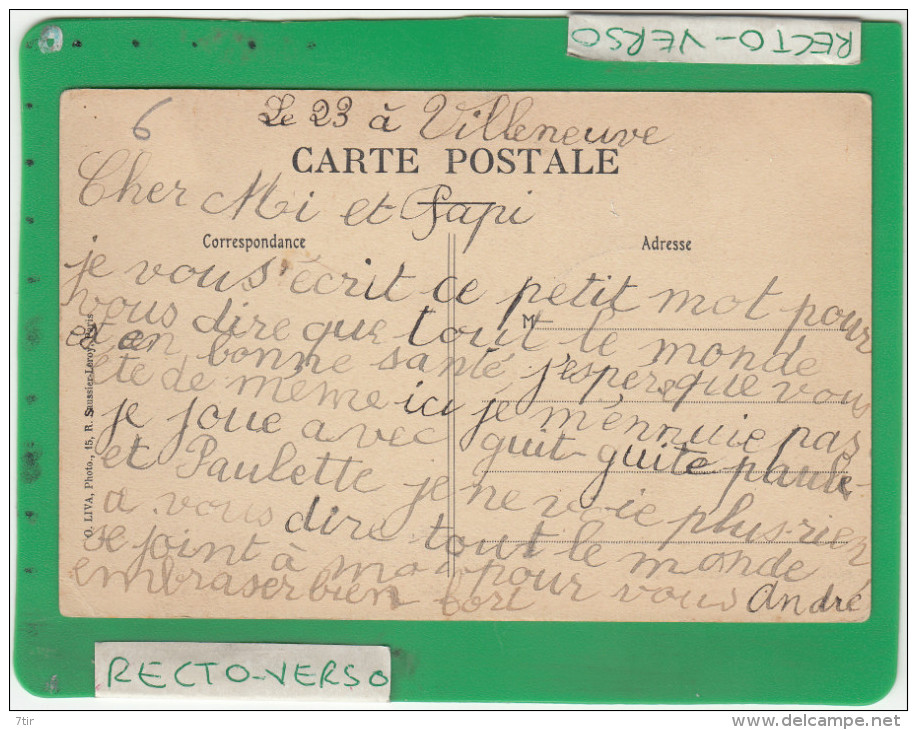 RECTO-VERSO
6
Le 23 à Villeneuve
CARTE POSTALE
Cher Mi et Papi
Correspondance
Adresse
je vous écrit ce petit mot pour
vous dire que tout le monde
M
et en bonne santé j'espere que vous
ete de même ici je m'ennuie pas
je joue avec guit-guite paule
et Paulette je ne voie plus-rien
a vous dire tout le monde
se joint à moi pour vous
embraser bien fort André
O. LIVA, Photo., 15, R. Saussier-Leroy, Paris
RECTO-VERSO
7tir
www.delcampe.net